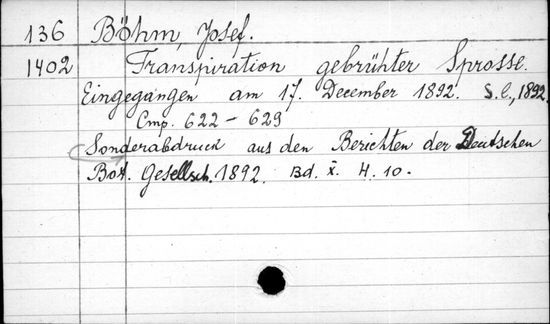 136 Böhm, Josef.
1402 Transpiration gebrühter Sprosse.
Eingegangen am 17. December 1892. S. l., 1892.
Cmp. 622-629
Sonderabdruck aus den Berichten der Deutschen
Bot. Gesellsch. 1892. Bd. X. H. 10.